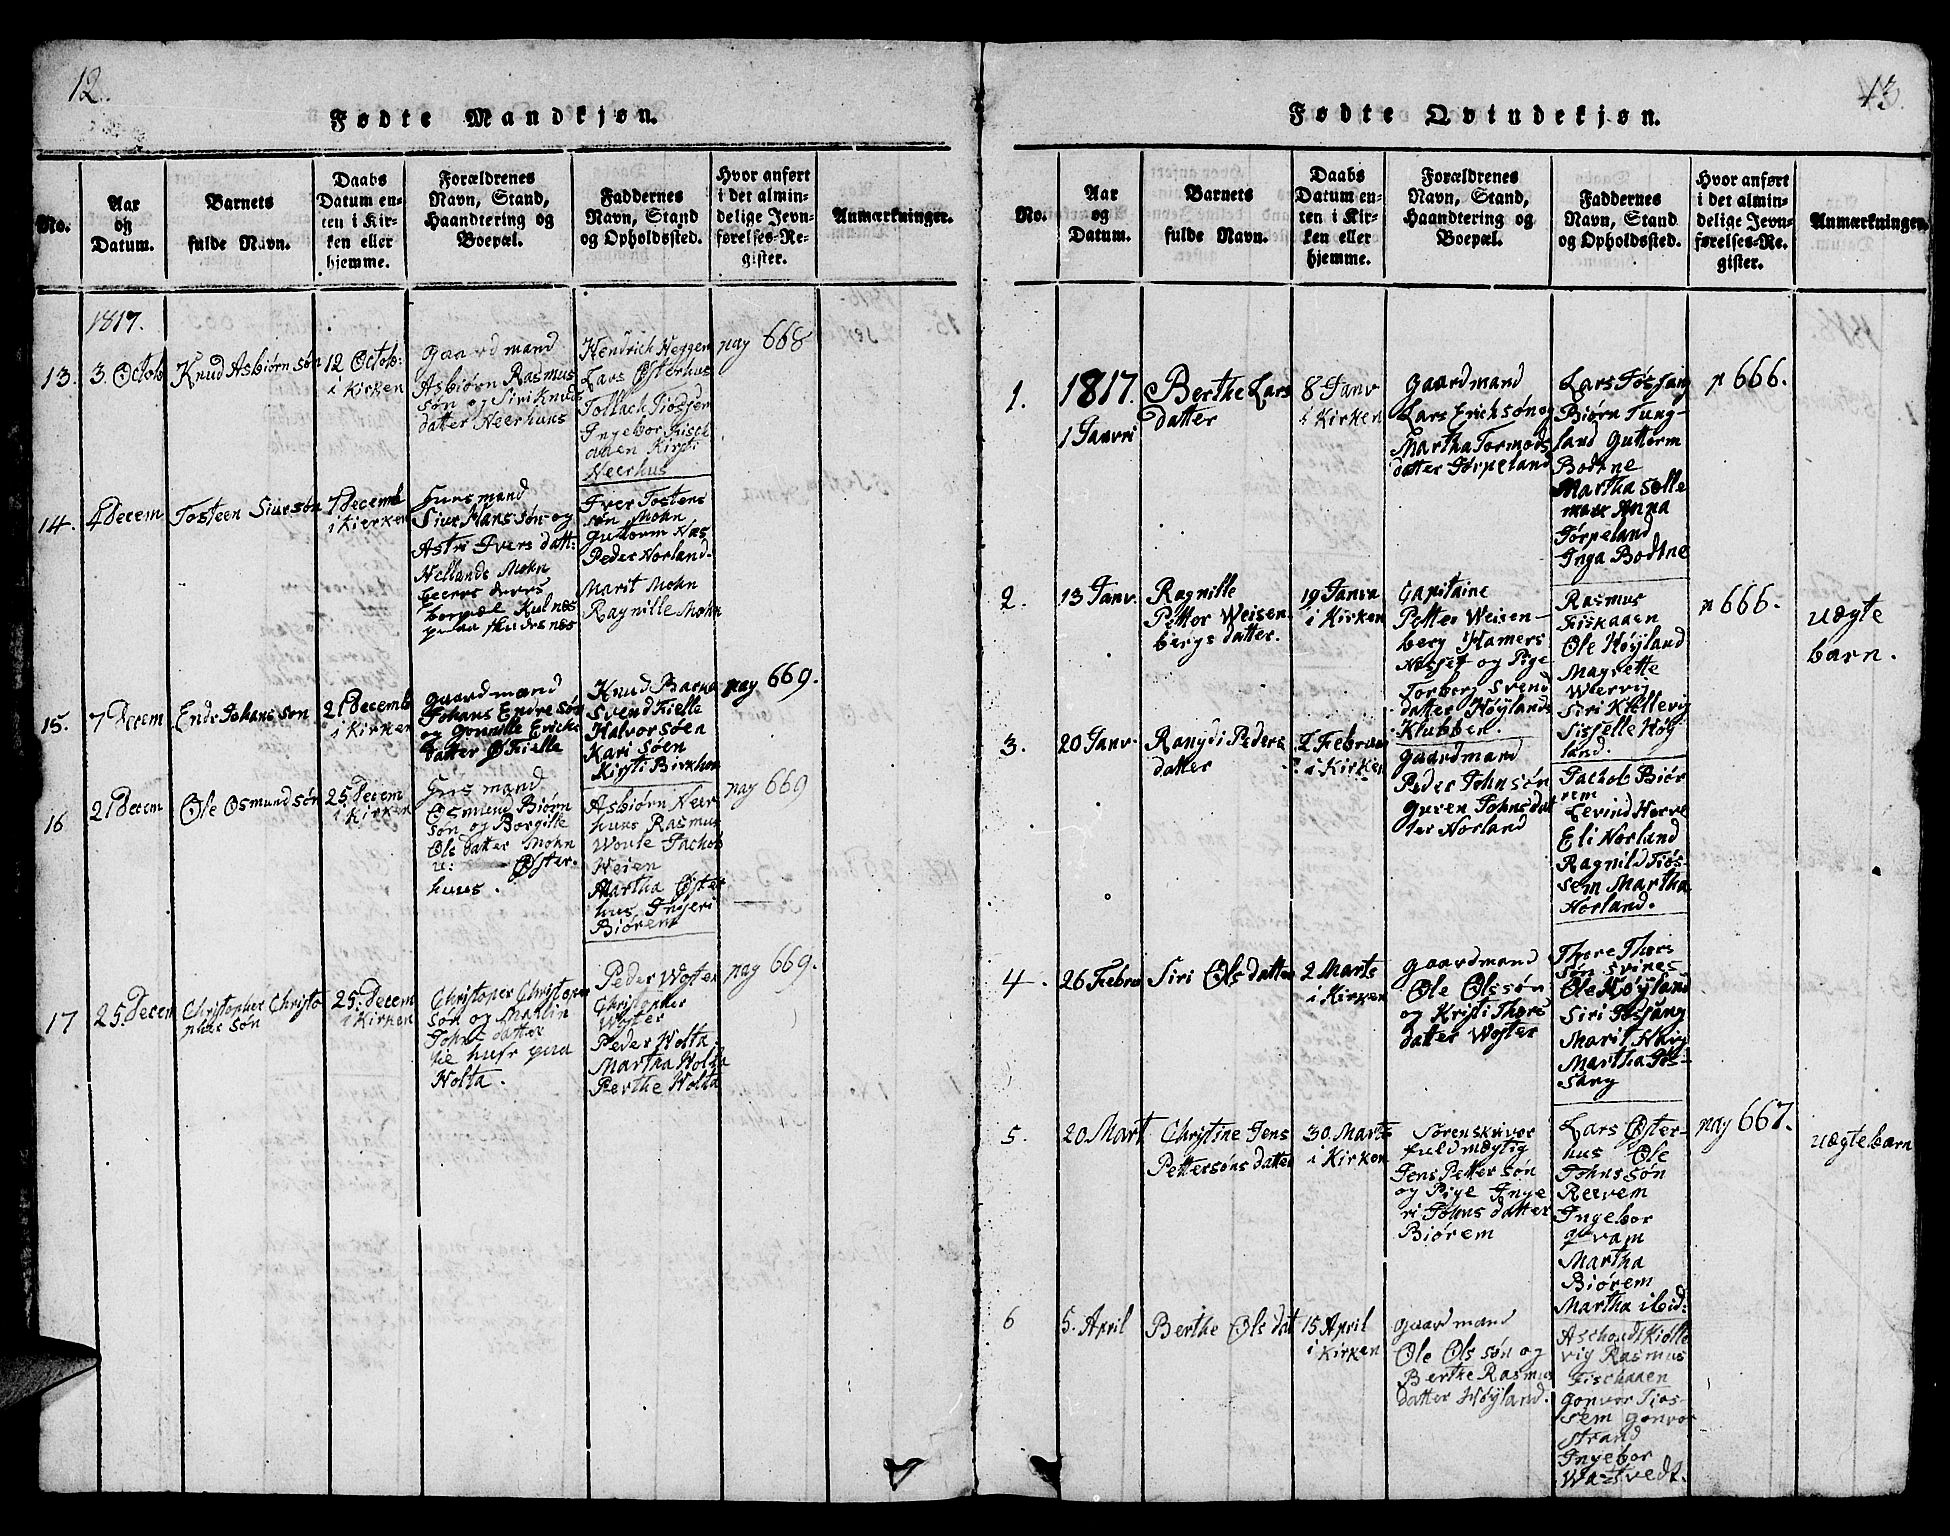 12.
Fødte Mandkjøn.
No.
Aar
og
Datum.
Barnets
fulde Navn.
Daabs
Datum en-
ten i Kir-
ken eller
hjemme.
Forældrenes
Navn, Stand,
Haandtering og
Boepæl.
Faddernes
Navn, Stand
og Opholdssted.
Hvor anført
i det almin-
delige Jevn-
førelses-Re-
gister.
Anmærkninger.
1817.
13.
3. Octob
Knud Asbiørnsøn
12 Octob:
i Kirken
Gaardmand
Asbiørn Rasmus
søn og Siri Knuds
datter Neerhuus
Hendrich Heggem
Lars Østerhus
Tollach
Ingebor
Kirsti
Neerhus
pag 668
14.
4 Decem
Tosteen Siursøn
7 Decemb
i Kierken
Huusmand
Siur Hanssøn og
Astri Ivers datt:
Hellands Mohn
deres
boepæl
paa Skudesnæs
Iver Tostens
søn Mohn
Guttorm Næs
Peder Norland.
Marit Mohn
Ragnille Mohn
15.
7 Decem
Endr Johanssøn
21 Decemb
i Kirken
Gaardmand
Johans Endresøn
og Gonnille Ericks
datter Ø Fielle
Knud Barka
Svend Fielle
Halvor søen
Kari søen
Kirsti Birkhun
pag 669.
16
21 Decem
Ole Osmundsøn
25 Decem
i Kirken
Husmand
Osmund Biørn
søn og Borgille
Ols datter Mohn
Øster-
huus.
Asbiørn Neer
huus Rasmus
Woule Jachob
Weien
Martha Øster
hus, Ingeri
Biørem
pag 669
17
25. Decem
Christopher Christo
phersøn
25. Decem
i Kirken
Christoper Christopher
søn og Marlin
Johns datter
paa
Holta.
Peder Woster
Christopher
Woster
Peder Holta.
Martha Holta
Berthe Holta
pag 669.
13.
Fødte Qvindekjøn.
No.
Aar
og
Datum.
Barnets
fulde Navn.
Daabs
Datum en-
ten i Kir-
ken eller
hjemme.
Forældrenes
Navn, Stand,
Haandtering og
Boepæl.
Faddernes
Navn, Stand
og Opholdssted.
Hvor anført
i det almin-
delige Jevn-
førelses-Re-
gister.
Anmærkninger.
1.
1817.
1 Janvri
Berthe Lars
datter
8 Janv
i Kirken
Gaardmand
Lars Erichsøn og
Martha Tormods
datter Jørpeland
Lars Fossang
Biørn Tung-
land Guttorm
Bodtne
Martha Selle
Anna
Jørpeland
Inga Bodtne
p 666.
2.
13 Janv.
Ragnille
Petter Weisen
bergs datter.
19 Janva
i Kirken
Capitaine
Petter Weisen-
berg Hamers
og Pige
Torberg Svend
datter Høylands
Klubben.
Rasmus
Fiskaaen
Ole Høyland
Magrette
Wiervig
Siri Kiellevig
Sisselle Høy
land.
p 666.
uægte
barn.
3.
20 Janv.
Rangdi Peders
datter
2 Februar
i Kirken
Gaardmand
Peder Johnsøn
Guren Johnsdat
ter Norland
Jachob Biør
rem
Eevind Herve
Eli Norland
Ragnild Fiøs-
sem Martha
Norland.
4.
26 Febru
Siri Ols datter
2 Marts
i Kirken
Gaardmand
Ole Olssøn
og Kristi Thors
datter Woster
Thore Thors
søn Svines
Ole Høyland
Siri Fossang
Marit
Martha Fos-
sang
5.
20 Mart
Christine Jens
Pettersøns datter
30. Marts
i Kirken
Sørenskriver
fuldmægtig
Jens Pettersøn
og Pige Inge
ri Johns datter
Biørem
Lars Øster-
hus Ole
Johnssøn
Reevem
Ingebor
qvam
Martha
Biørem
Martha ibid:
pag 667.
uægte barn
6
5. April
Berthe Ols dat
15 April
i Kirken
Gaardmand
Ole Olssøn og
Berthe Rasmus
datter Høyland.
Aschoudt Kiølle
vig Rasmus
Fischaaen
Gonvor Fios-
sem Gonvor
Strand
Ingebor
Watvedt.